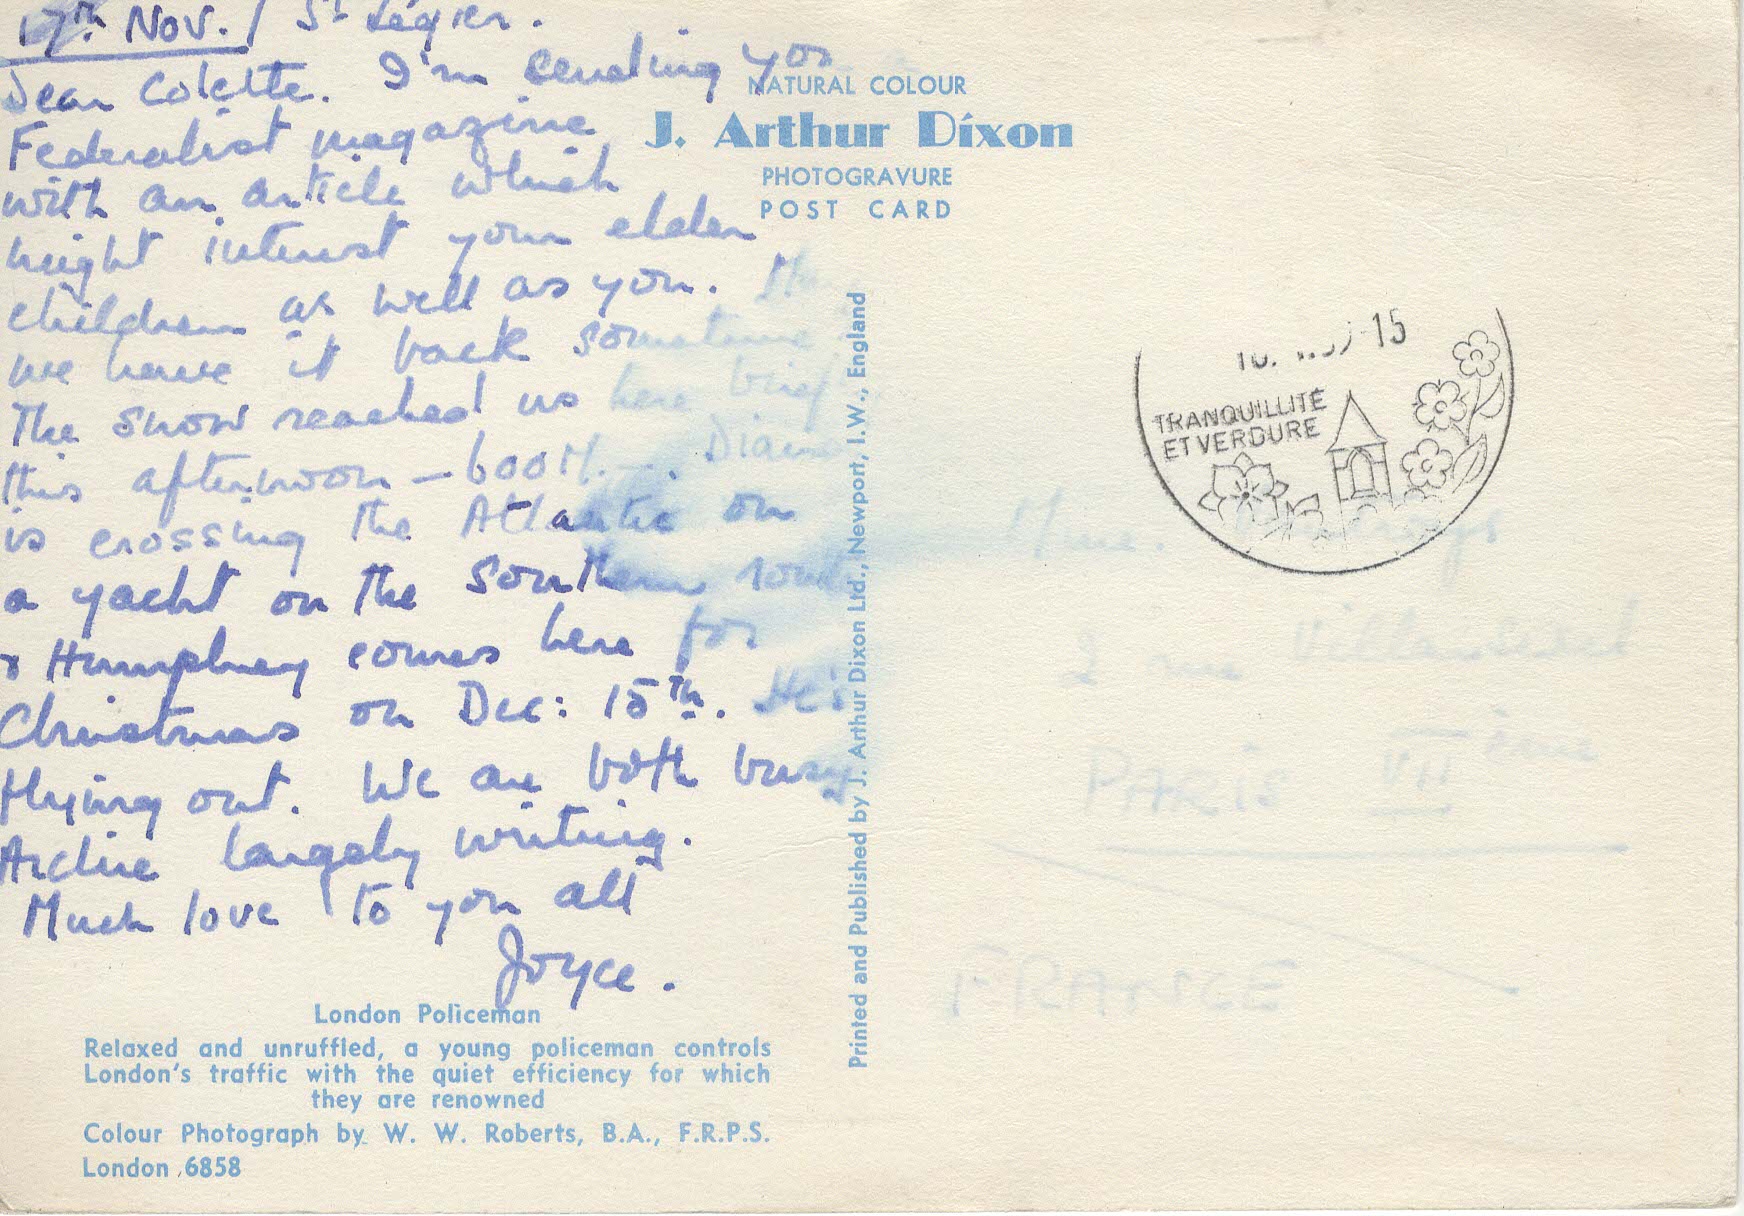 17th Nov. / St Légier.
Dear Colette. I'm sending you a
Federalist magazine
with an article which
might interest your elder
children as well as you. May
we have it back sometime
The snow reached us here
this afternoon – 600 M. –. Diana
is crossing the Atlantic on
a yacht on the Southern route
& Humphrey comes here for
Christmas on Dec: 15th. He's
flying out. We are both busy
Archie largely writing.
Much love to you all
Joyce.
NATURAL COLOUR
J. Arthur Dixon
PHOTOGRAVURE
POST CARD
Printed and Published by J. Arthur Dixon Ltd., Newport, I.W., England
London Policeman
Relaxed and unruffled, a young policeman controls
London's traffic with the quiet efficiency for which
they are renowned
Colour Photograph by W. W. Roberts, B.A., F.R.P.S.
London 6858
15
TRANQUILLITÉ
ET VERDURE
Mme.
2 rue
PARIS VII ème
FRANCE